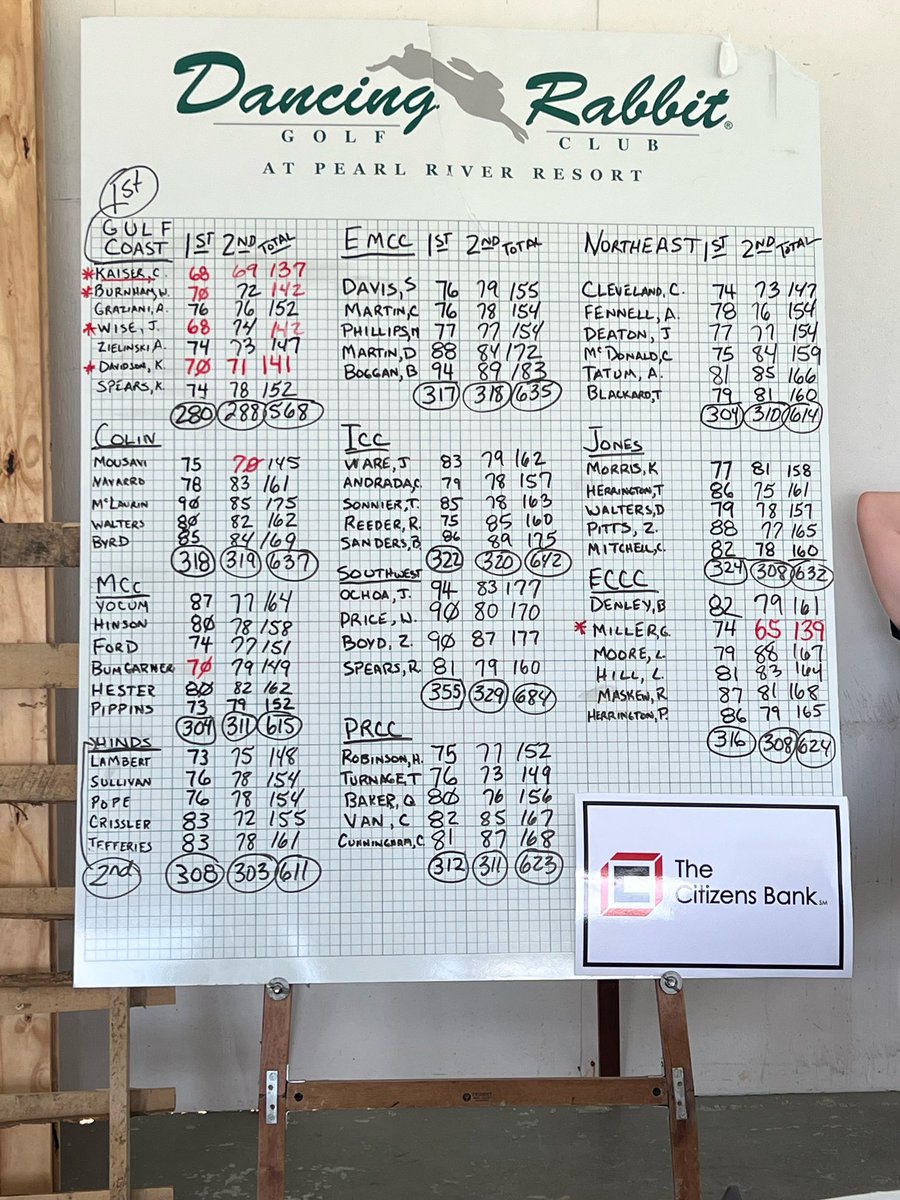 Dancing Rabbit®
GOLF CLUB
AT PEARL RIVER RESORT
1st
GULF COAST 1ST 2ND TOTAL
*KAISER, C. 68 69 137
*BURNHAM, W. 70 72 142
GRAZIANI, A. 76 76 152
*WISE, J. 68 74 142
ZIELINSKI, A. 74 73 147
*DAVIDSON, K. 70 71 141
SPEARS, K. 74 78 152
280 288 568
COLIN
MOUSAVI 75 70 145
NAVARRO 78 83 161
McLAURIN 90 85 175
WALTERS 80 82 162
BYRD 85 84 169
318 319 637
MCC
YOCUM 87 77 164
HINSON 80 78 158
FORD 74 77 151
BUMGARNER 70 79 149
HESTER 80 82 162
PIPPINS 73 79 152
304 311 615
HINDS
LAMBERT 73 75 148
SULLIVAN 76 78 154
POPE 76 78 154
CRISSLER 83 72 155
JEFFERIES 83 78 161
2nd 308 303 611
EMCC 1ST 2ND TOTAL
DAVIS, S 76 79 155
MARTIN, C 76 78 154
PHILLIPS, M 77 77 154
MARTIN, D 88 84 172
BOGGAN, B 94 89 183
317 318 635
ICC
WARE, J 83 79 162
ANDRADA, C. 79 78 157
SONNIER, T. 85 78 163
REEDER, R. 75 85 160
SANDERS, B. 86 89 175
322 320 642
SOUTHWEST
OCHOA, J. 94 83 177
PRICE, W. 90 80 170
BOYD, Z. 90 87 177
SPEARS, R. 81 79 160
355 329 684
PRCC
ROBINSON, H. 75 77 152
TURNAGE, T 76 73 149
BAKER, Q 80 76 156
VAN, C 82 85 167
CUNNINGHAM, C. 81 87 168
312 311 623
NORTHEAST 1ST 2ND TOTAL
CLEVELAND, C. 74 73 147
FENNELL, A. 78 76 154
DEATON, J 77 77 154
McDONALD, C 75 84 159
TATUM, A. 81 85 166
BLACKARD, T 79 81 160
304 310 614
JONES
MORRIS, K 77 81 158
HERRINGTON, T 86 75 161
WALTERS, D 79 78 157
PITTS, Z. 88 77 165
MITCHELL, C. 82 78 160
324 308 632
ECCC
DENLEY, B 82 79 161
*MILLER, G. 74 65 139
MOORE, L. 79 88 167
HILL, L. 81 83 164
MASKEW, R 87 81 168
HERRINGTON, P. 86 79 165
316 308 624
The
Citizens Bank SM